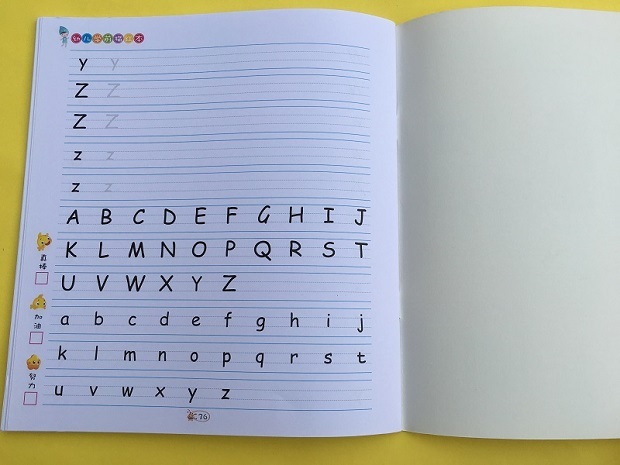 幼儿学前描红本
y y
Z Z
Z Z
z z
z z
A B C D E F G H I J
K L M N O P Q R S T
U V W X Y Z
a b c d e f g h i j
k l m n o p q r s t
u v w x y z
真棒
加油
努力
76